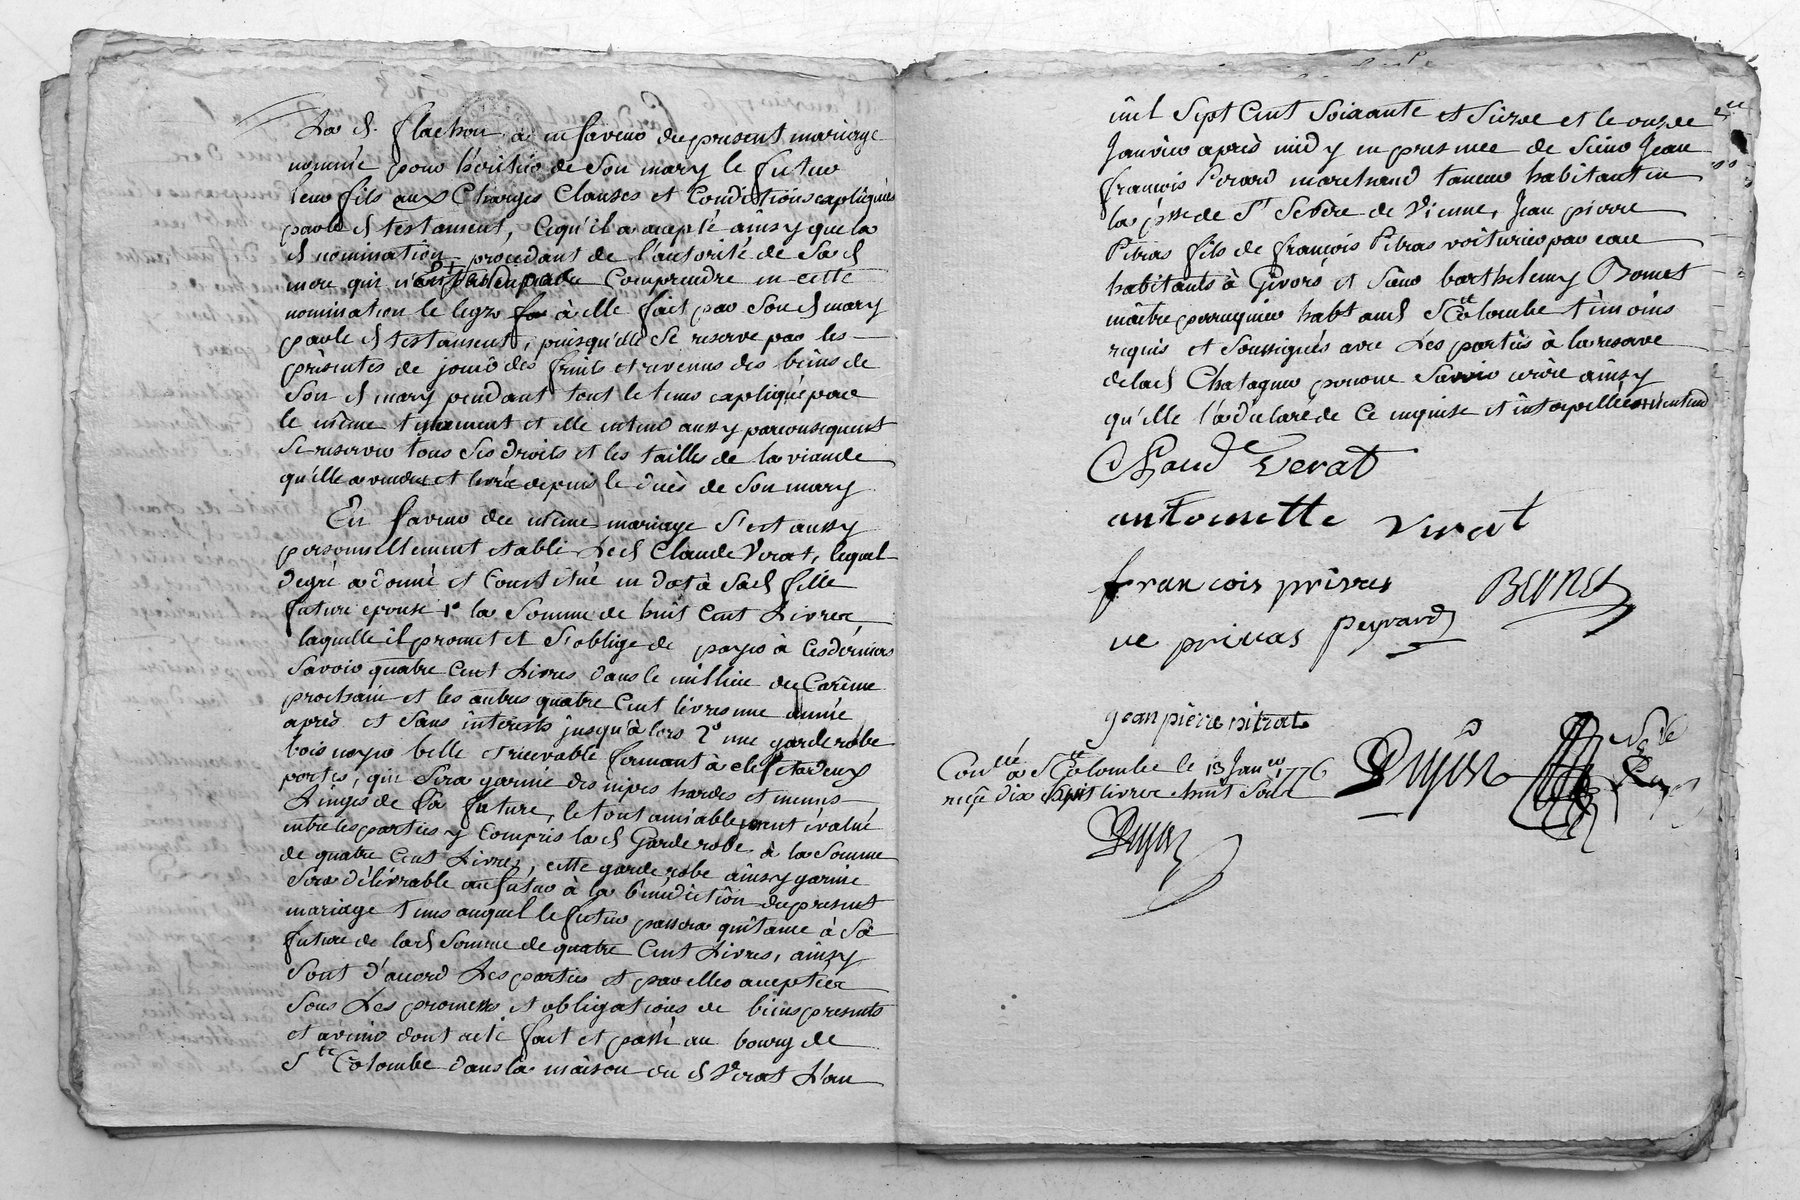 La d. flachon a en faveur du present mariage
nommé pour héritier de Son mary le futur
leur fils aux Charges Clauses et Conditiôns expliquées
par le d testament, Ce qu'il a accepté ainsy que la
d nomination procedant de l'autorité de Sa d
mere qui Comprendre en cette
nomination le legs à elle fait par Son d mary
par le d testament, puisqu'elle Se reserve par les
présentes de jouir des fruits et revenus des biens de
Son d mary pendant tout le tems expliqué par
le même testament et elle entend aussy par consequent
Se reserver tous Ses droits et les tailles de la viande
qu'elle a vendue et livrée depuis le décès de Son mary
En faveur du même mariage S'est aussy
personnellement etabli Le d Claude Verat, lequel
degré a donné et Constitué en dot à Sa d fille
future epouse 1º la Somme de huit Cent Livres
laquelle il promet et S'oblige de payer à Ces derniers
Savoir quatre Cent Livres dans le millieu du Carême
prochain et les autres quatre Cent livres une année
après et Sans intérests jusqu'à lors 2º une garderobe
bois noyer belle et recevable fermant à clef et à deux
portes, qui Sera garnie des nipes hardes et menus
Linges de la future, le tout amiablement évalué
entre les parties y Compris la d Garderobe à la Somme
de quatre Cent Livres, cette garderobe ainsy garnie
Sera délivrable au futur à la bénédiction du present
mariage tems auquel le futur passera quitance à Sa
future de la d Somme de quatre Cent Livres, ainsy
Sont d'accord Les parties et par elles accepté
Sous Les promesses et obligations de biens presents
et avenir dont acte fait et passé au bourg de
Ste Colombe dans la maison du d Verat L'an
mil Sept Cent Soixante et Seize et le onze
Janvier après midy en presence de Sieur Jean
françois Perard marchand taneur habitant en
la psse de St Sevère de Vienne, Jean pierre
Pitras fils de françois Pitras voiturier par eau
habitants à Givors et Sieur barthelemy Bonnet
maître perruquier habt aud Ste Colombe témoins
requis et Soussignés avec Les parties à la reserve
de la d Chatagner pour ne Savoir ecrire ainsy
qu'elle l'a declaré de Ce enquise et interpellée
Claude Verat
antoinette verat
francois privas
BENNET
ve privas peyrard
jean pierre pitrat
Conllé à Ste Colombe le 13 Janer 1776
reçu dix sept livres huit Sous
Dujon
Dujon